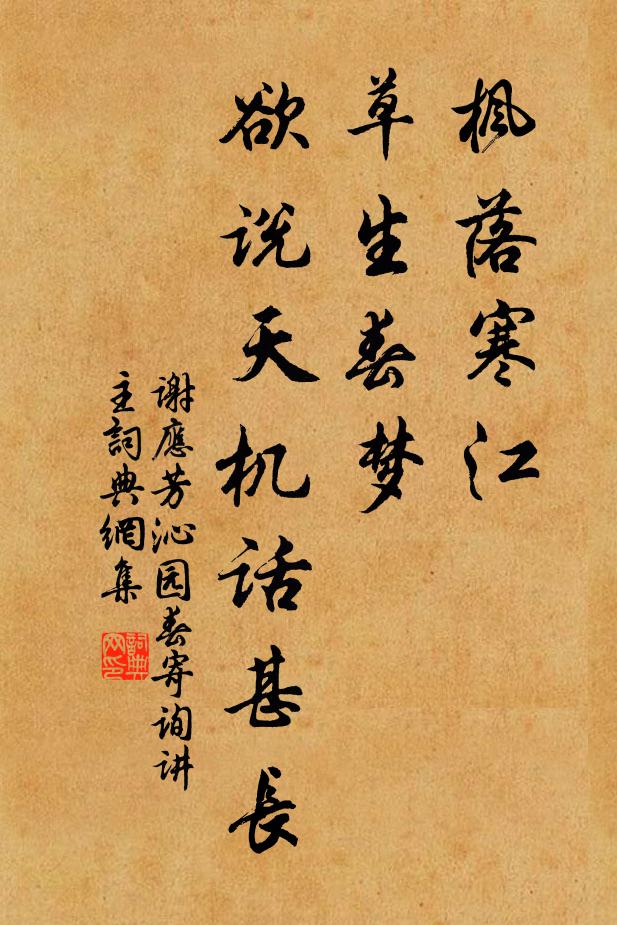 枫落寒江
草生春梦
欲说天机话甚長
谢應芳沁园春寄询讲
主詞典網集
詞典网印